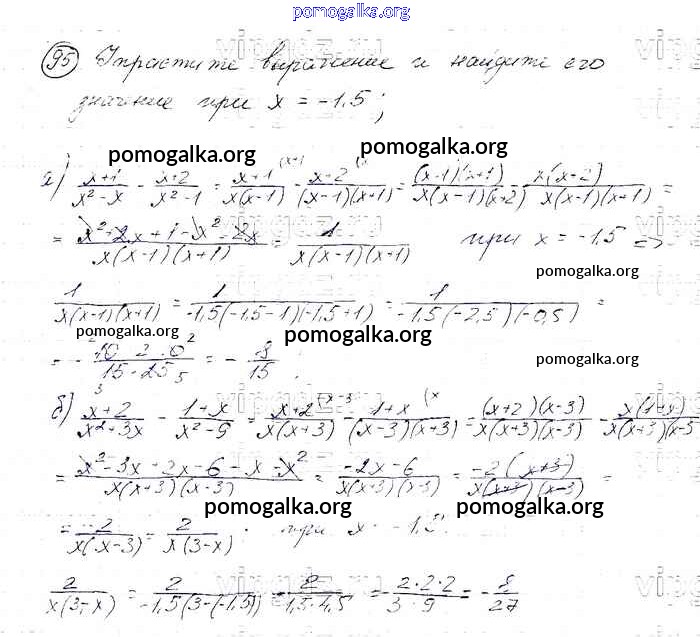 pomogalka.org
95 Упростите выражение и найдите его
значение при x = -1,5;
pomogalka.org
а) x+1/x²-x - x+2/x²-1 = x+1/x(x-1) - x+2/(x-1)(x+1) = (x+1)(x+1)/x(x-1)(x+2) - x(x+2)/x(x-1)(x+1) =
= x²+2x+1-x²-2x/x(x-1)(x+1) = 1/x(x-1)(x+1) при x = -1,5 =>
pomogalka.org
1/x(x-1)(x+1) = 1/-1,5(-1,5-1)(-1,5+1) = 1/-1,5(-2,5)(-0,5) =
pomogalka.org pomogalka.org
= - = - 8/15.
pomogalka.org
б) x+2/x²+3x - 1+x/x²-9 = x+2/x(x+3) - 1+x/(x-3)(x+3) = (x+2)(x-3)/x(x+3)(x-3) - x(1+x)/x(x+3)(x-3)
= x²-3x+2x-6-x-x²/x(x+3)(x-3) = -2x-6/x(x+3)(x-3) = -2(x+3)/x(x+3)(x-3) =
pomogalka.org pomogalka.org
= -2/x(x-3) = 2/x(3-x) при x
2/x(3-x) = 2/-1,5(3-(-1,5)) = 2/1,5·4,5 = -2·2·2/3·9 = -8/27